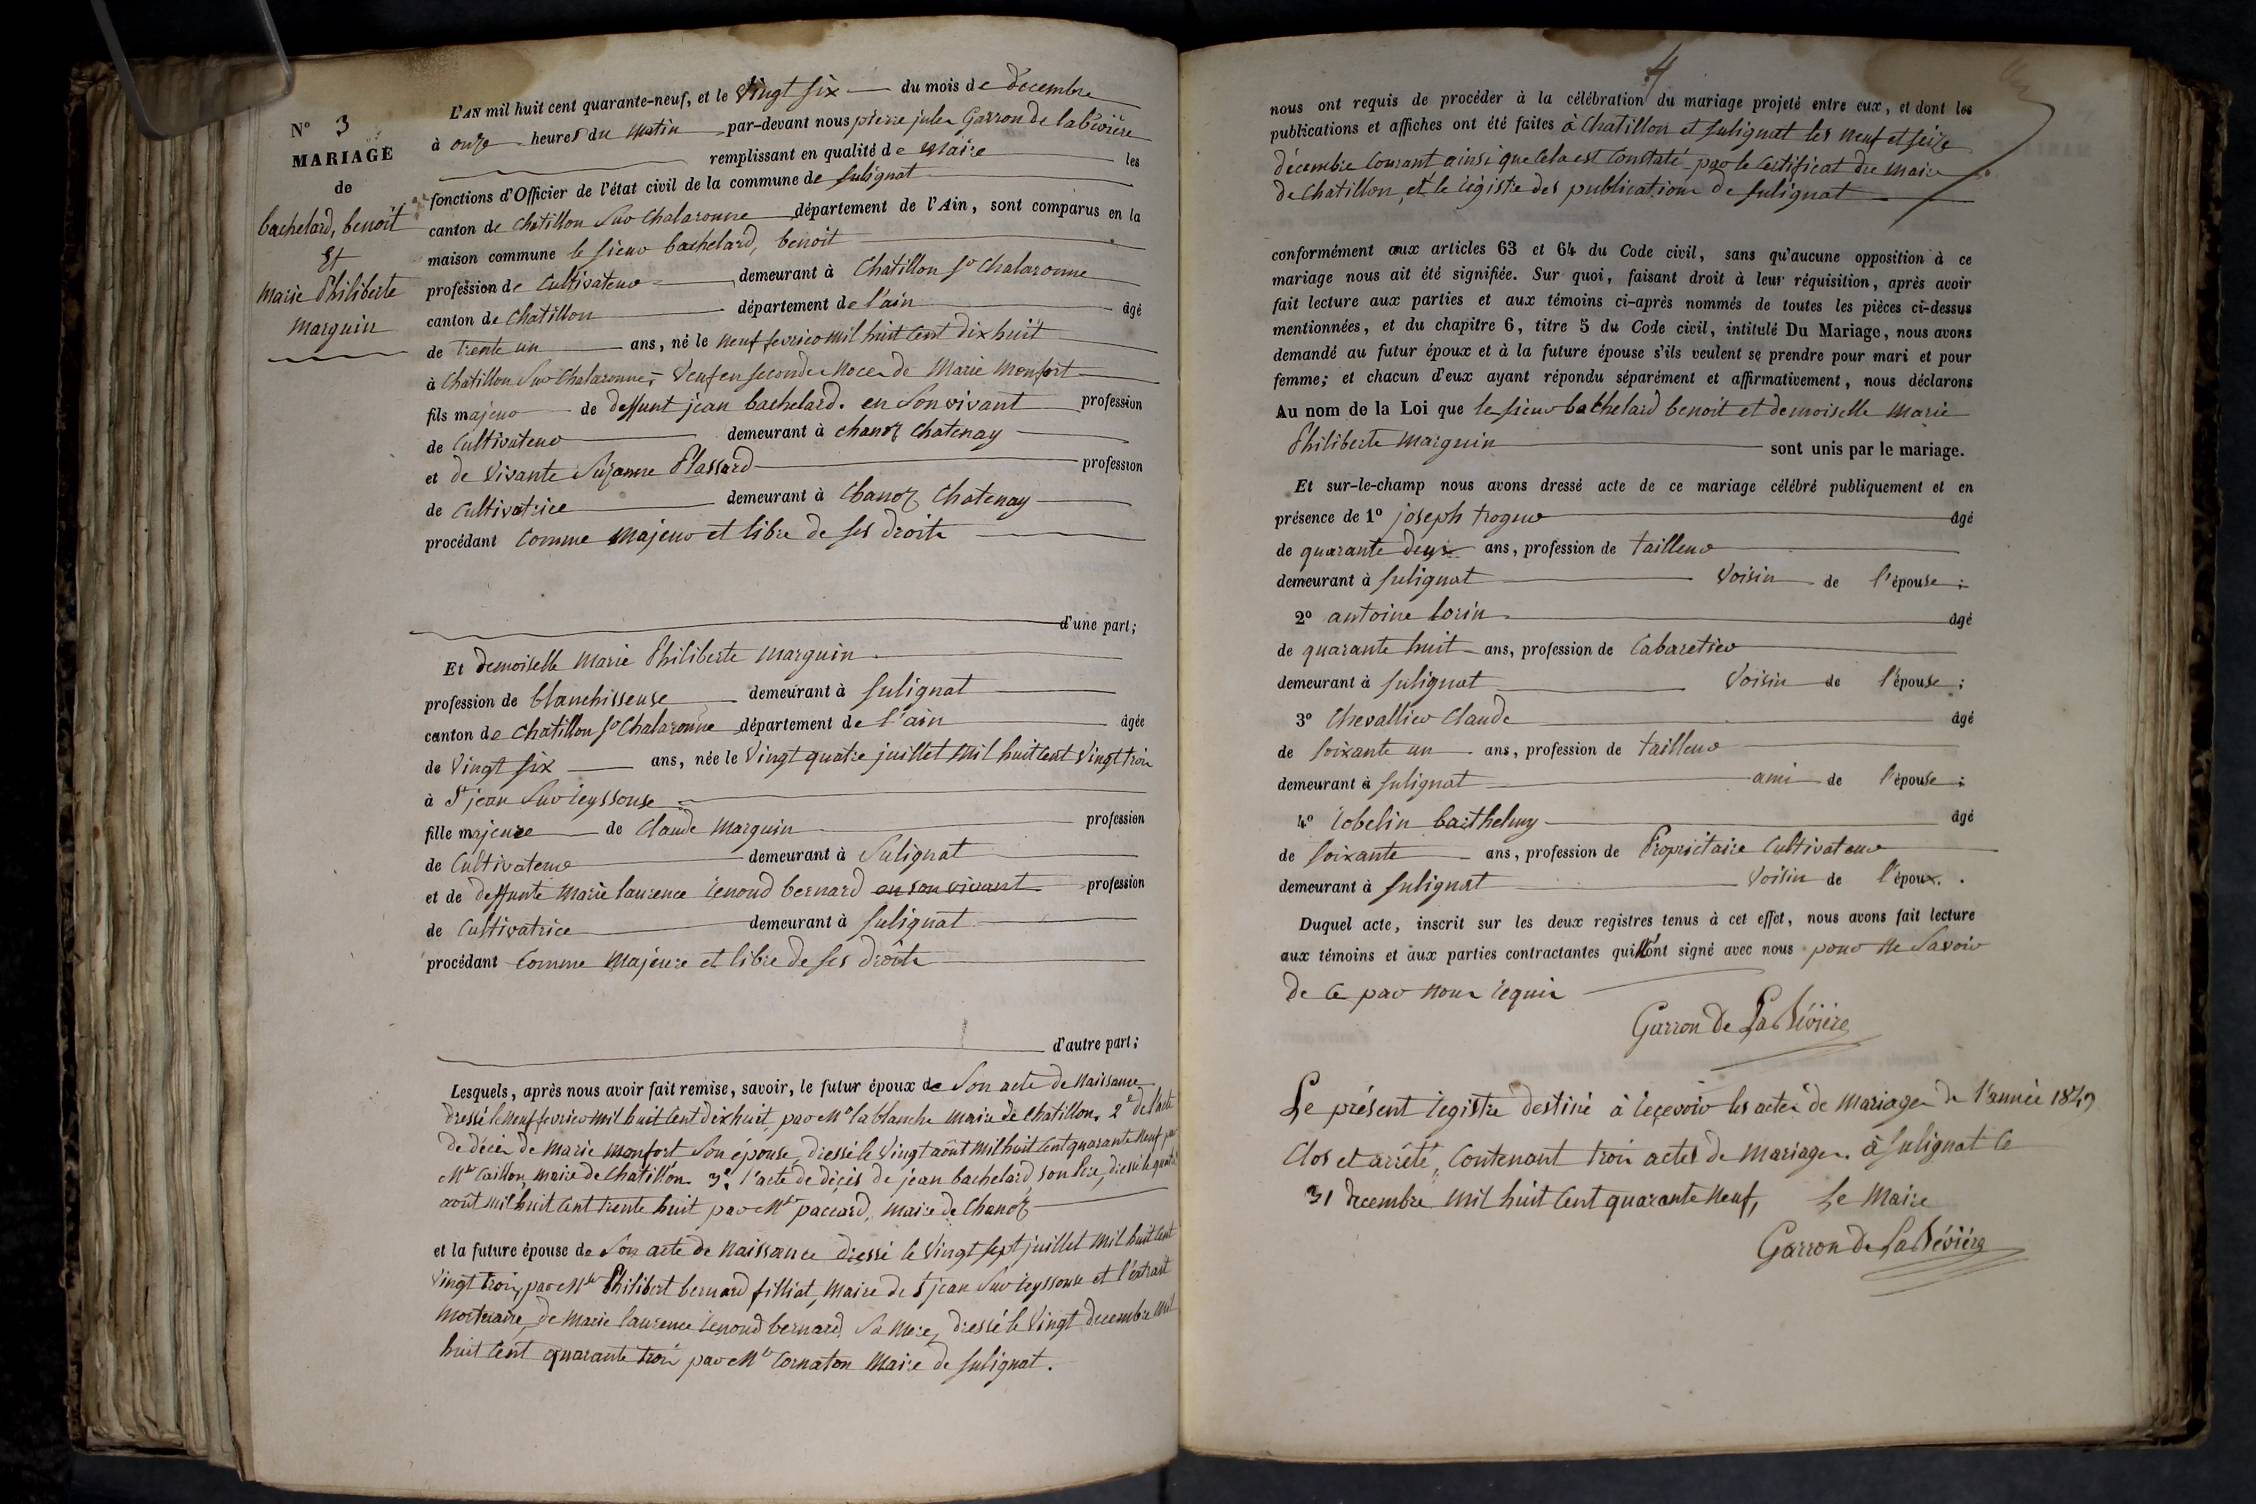 N° 3
MARIAGE
de
bachelard, benoit
Et
Marie Philiberte
Marguin
L'AN mil huit cent quarante-neuf, et le Vingt six du mois de decembre
à onze heures du Matin par-devant nous pierre jules Garron de labévière
remplissant en qualité de Maire les
fonctions d'Officier de l'état civil de la commune de Sulignat
canton de Chatillon Sur Chalaronne département de l'Ain, sont comparus en la
maison commune le sieur bachelard, benoit
profession de Cultivateur demeurant à Chatillon Sr Chalaronne
canton de Chatillon département de l'ain âgé
de Trente un ans, né le neuf fevrier mil huit Cent dix huit
à Chatillon Sur Chalaronne, Veuf en secondes Noces de Marie Monfort
fils majeur de deffunt jean bachelard. en Son vivant profession
de Cultivateur demeurant à Chanoz Chatenay
et de Vivante Suzanne Plassard profession
de Cultivatrice demeurant à Chanoz Chatenay
procédant Comme Majeur et libre de ses droits
d'une part;
Et demoiselle Marie Philiberte Marguin
profession de blanchisseuse demeurant à Sulignat
canton de Chatillon Sr Chalaronne département de l'ain âgée
de Vingt six ans, née le Vingt quatre juillet Mil huit Cent Vingt trois
à St jean Sur reyssouse
fille majeure de Claude Marguin profession
de Cultivateur demeurant à Sulignat
et de deffunte Marie laurence renoud bernard en son vivant profession
de Cultivatrice demeurant à Sulignat
procédant Comme Majeure et libre de ses droits
d'autre part;
Lesquels, après nous avoir fait remise, savoir, le futur époux de Son acte de Naissance
dressé le Neuf fevrier Mil huit Cent dix huit, par Mr lablanche Maire de Chatillon. 2° de l'acte
de décès de Marie Monfort Son épouse, dressé le Vingt août Mil huit Cent quarante Neuf par
Mr Caillon, Maire de Chatillon. 3° l'acte de décès de jean bachelard, son Père, dressé le quatre
août Mil huit Cent trente huit par Mr paccard, Maire de Chanoz
et la future épouse de Son acte de Naissance dressé le Vingt sept juillet Mil huit Cent
Vingt trois, par Mr Philibert bernard filliat, Maire de St jean Sur reyssouse et l'extrait
Mortuaire, de Marie laurence renoud bernard Sa Mere, dressé le Vingt decembre Mil
huit Cent quarante trois par Mr Cornaton Maire de Sulignat.
4
nous ont requis de procéder à la célébration du mariage projeté entre eux, et dont les
publications et affiches ont été faites à Chatillon et Sulignat les Neuf et seize
décembre Courant ainsi que Cela est Constaté par le Certificat du Maire
de Chatillon, et le régistre des publications de Sulignat
conformément aux articles 63 et 64 du Code civil, sans qu'aucune opposition à ce
mariage nous ait été signifiée. Sur quoi, faisant droit à leur réquisition, après avoir
fait lecture aux parties et aux témoins ci-après nommés de toutes les pièces ci-dessus
mentionnées, et du chapitre 6, titre 5 du Code civil, intitulé Du Mariage, nous avons
demandé au futur époux et à la future épouse s'ils veulent se prendre pour mari et pour
femme; et chacun d'eux ayant répondu séparément et affirmativement, nous déclarons
Au nom de la Loi que le sieur bachelard benoit et demoiselle Marie
Philiberte Marguin sont unis par le mariage.
Et sur-le-champ nous avons dressé acte de ce mariage célébré publiquement et en
présence de 1° joseph trogeur âgé
de quarante deux ans, profession de tailleur
demeurant à Sulignat Voisin de l'épouse;
2° antoine lorin âgé
de quarante huit ans, profession de Cabaretier
demeurant à Sulignat Voisin de l'épouse;
3° Chevallier Claude âgé
de soixante un ans, profession de tailleur
demeurant à Sulignat ami de l'épouse;
4° robelin barthelmy âgé
de soixante ans, profession de Propriétaire Cultivateur
demeurant à Sulignat Voisin de l'époux.
Duquel acte, inscrit sur les deux registres tenus à cet effet, nous avons fait lecture
aux témoins et aux parties contractantes qui n'ont signé avec nous pour Ne Savoir
de Ce par Nous requis
Garron de La Bévière
Le présent registre destiné à reçevoir les actes de Mariages de l'année 1849
Clos et arrêté, Contenant trois actes de Mariages. à Sulignat Ce
31 decembre Mil huit Cent quarante Neuf, Le Maire
Garron de La Bévière